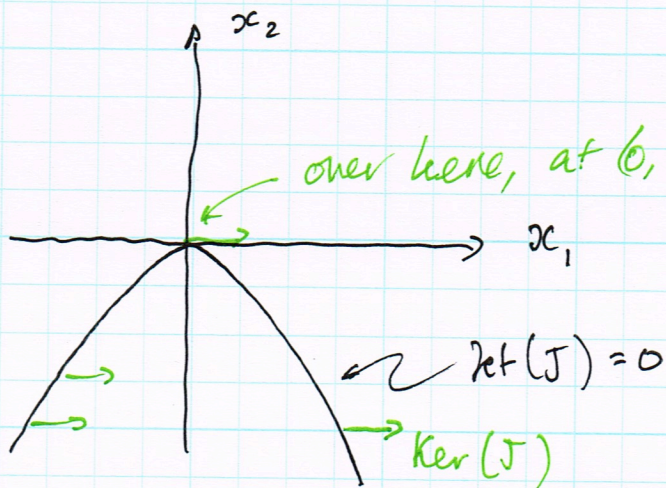 x₂
over here, at 0,
x₁
det(J) = 0
Ker(J)